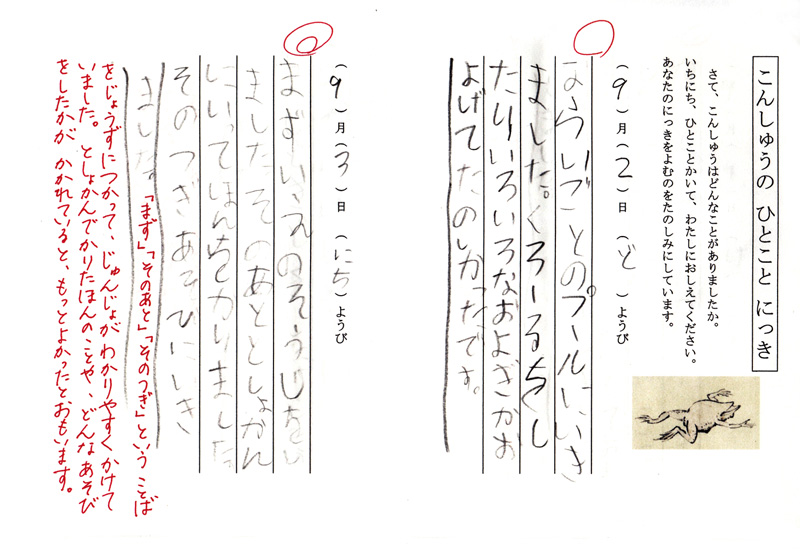 こんしゅうの ひとこと にっき
さて、こんしゅうはどんなことがありましたか。
いちにち、ひとことかいて、わたしにおしえてください。
あなたのにっきをよむのをたのしみにしています。
(9)月(2)日(ど)ようび
ならいごとのプールにいき
ました。くろーるをし
たりいろいろなおよぎがお
よげてたのしかったです。
(9)月(3)日(にち)ようび
まずいえのそうじをし
ましたそのあととしょかん
にいってほんをかりました
そのつぎあそびにいき
ました。
「まず」「そのあと」「そのつぎ」という ことば
をじょうずにつかって、じゅんじょが わかりやすく かけて
いました。としょかんでかりたほんのことや、どんなあそび
をしたかが かかれていると、もっとよかったとおもいます。